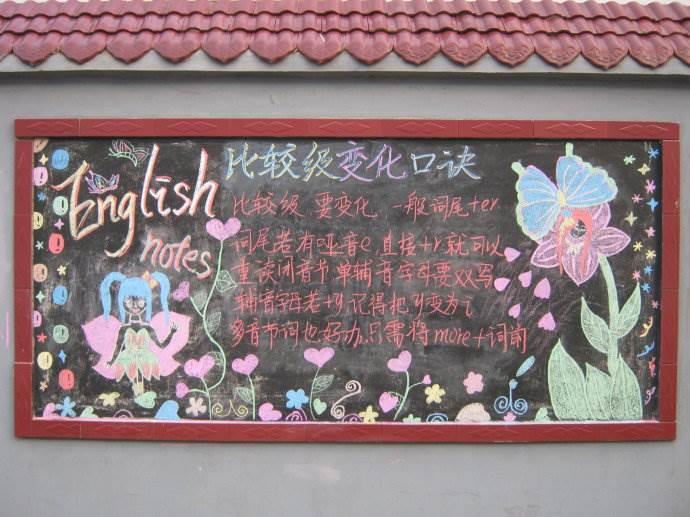 English
notes
比较级变化口诀
比较级 要变化 一般词尾+er
词尾若有哑音e 直接+r就可以
重读闭音节 单辅音字母要双写
辅音字母老+y 记得把y变为i
多音节词也好办 只需将more+词前